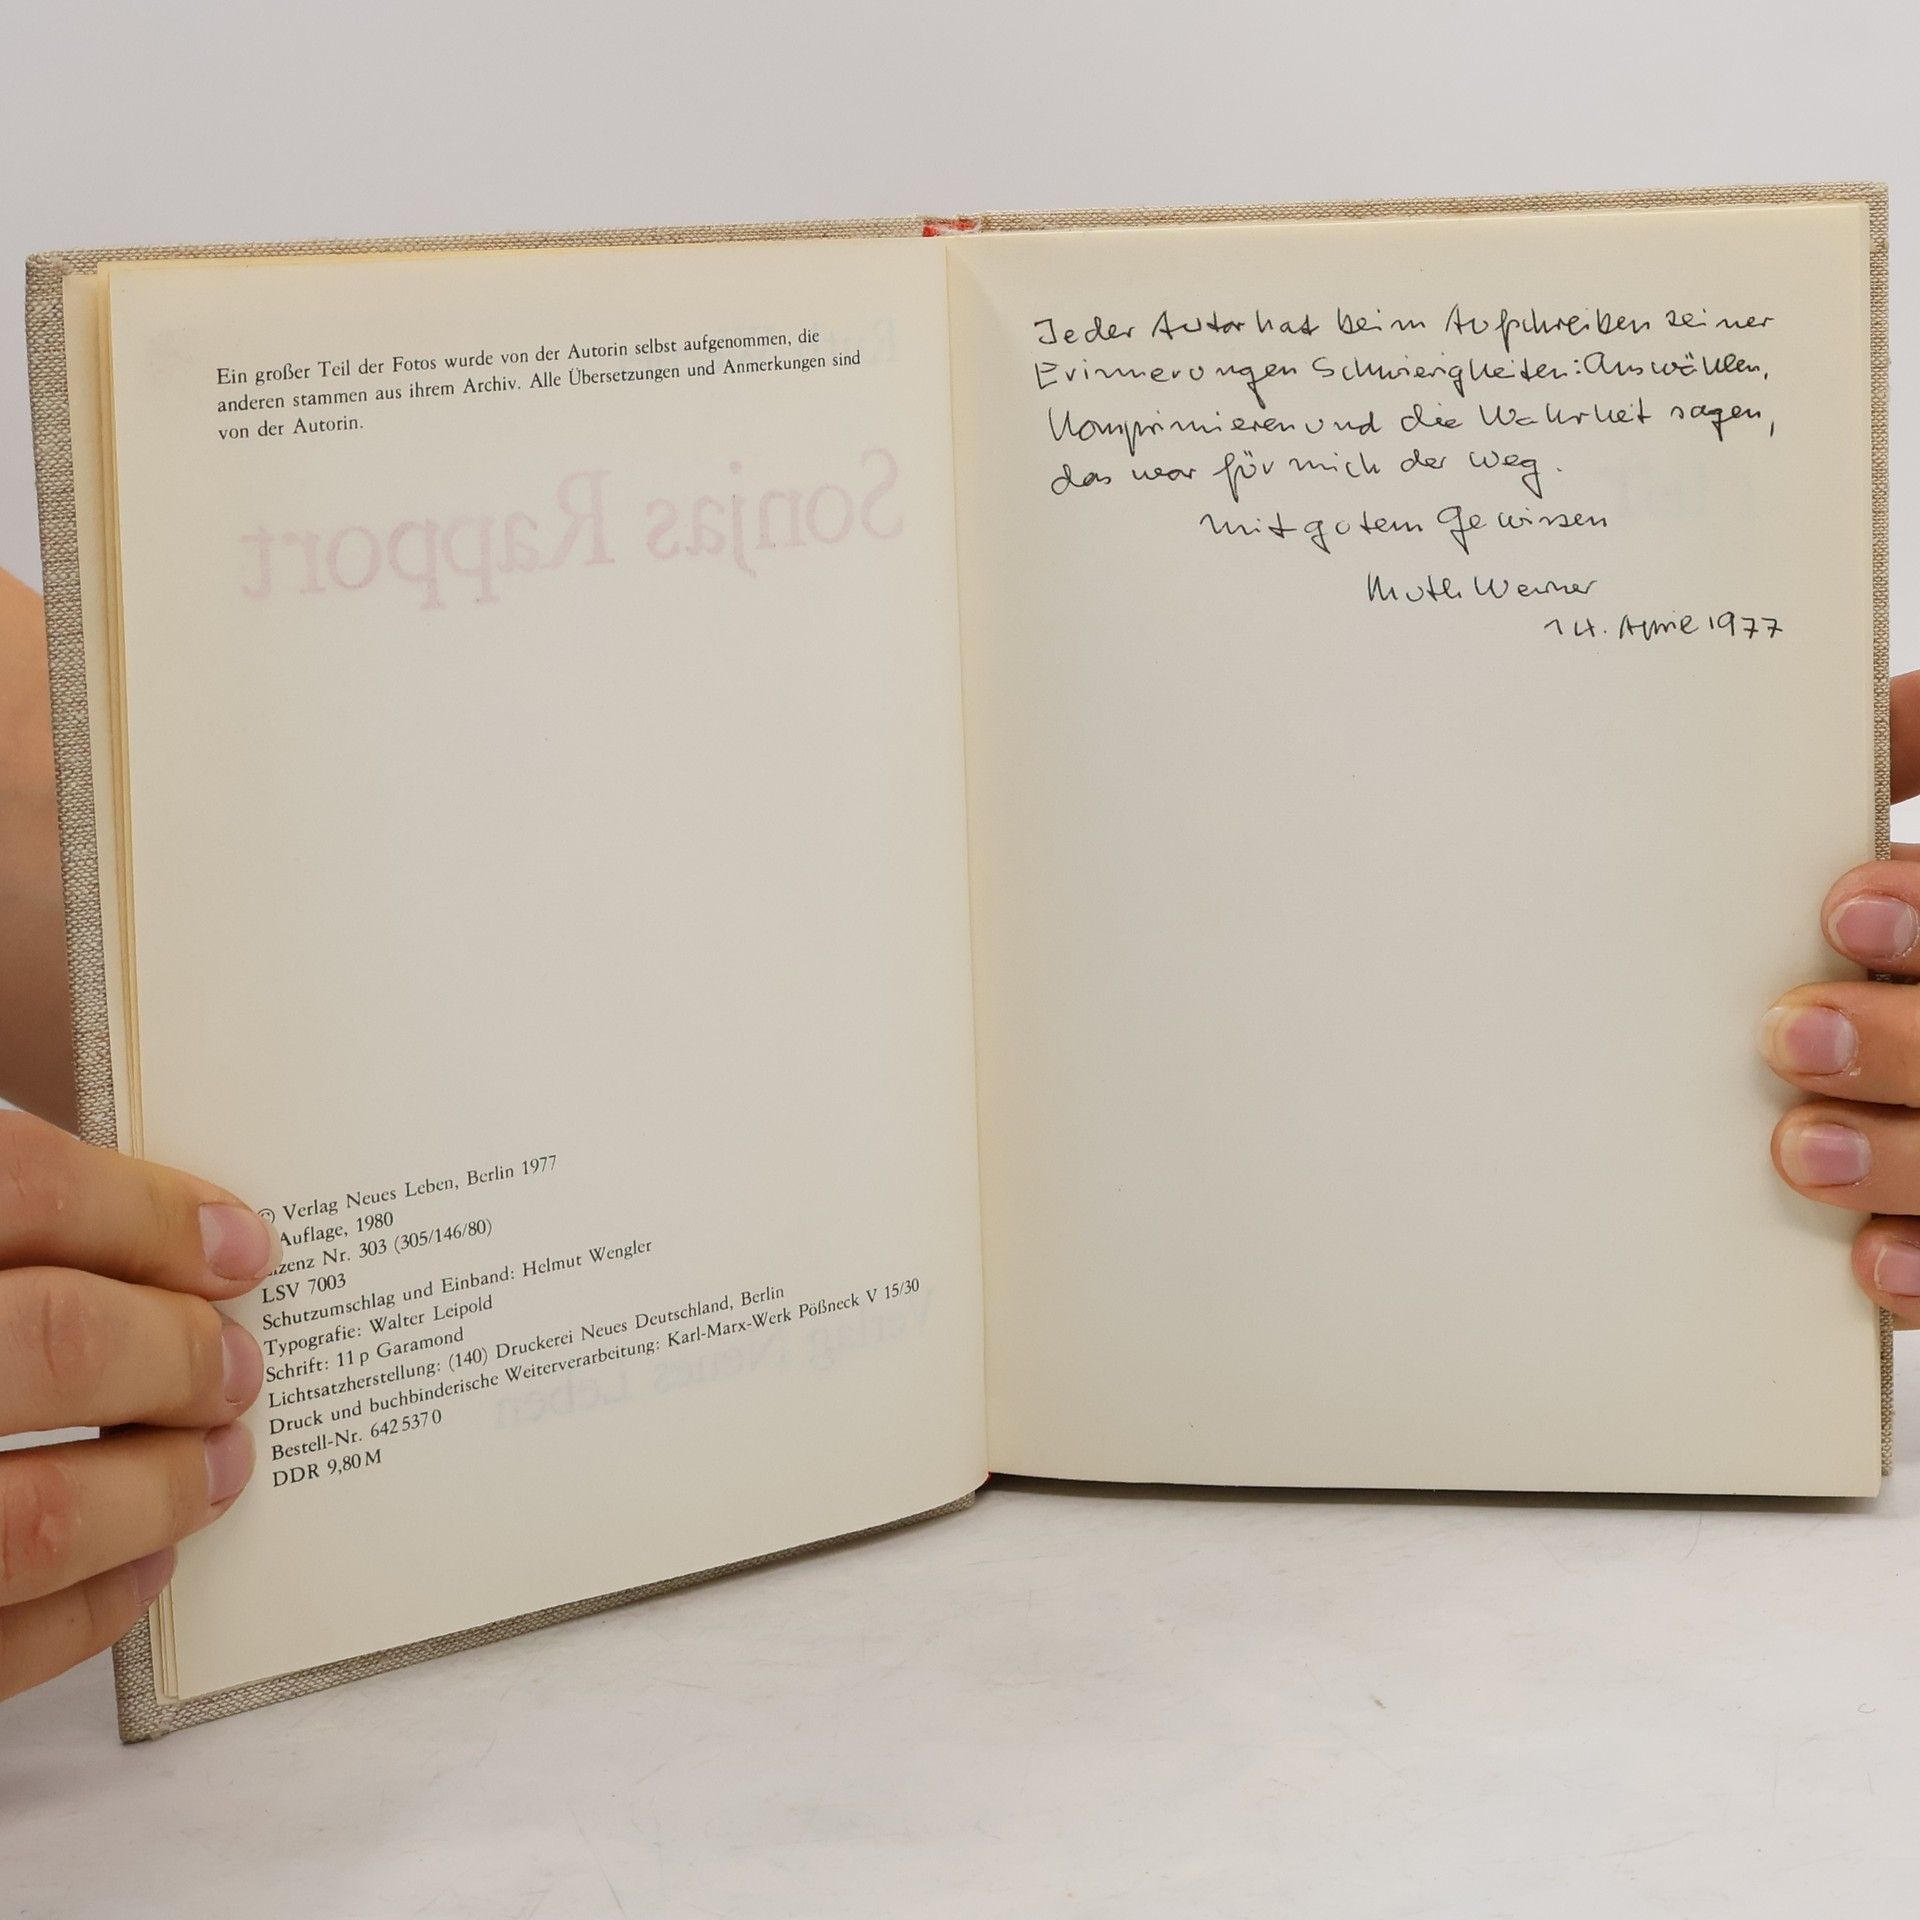 Ein großer Teil der Fotos wurde von der Autorin selbst aufgenommen, die
anderen stammen aus ihrem Archiv. Alle Übersetzungen und Anmerkungen sind
von der Autorin.
Sonjas Rapport
© Verlag Neues Leben, Berlin 1977
Auflage, 1980
Nr. 303 (305/146/80)
LSV 7003
Schutzumschlag und Einband: Helmut Wengler
Typografie: Walter Leipold
Schrift: 11 p Garamond
Lichtsatzherstellung: (140) Druckerei Neues Deutschland, Berlin
Druck und buchbinderische Weiterverarbeitung: Karl-Marx-Werk Pößneck V 15/30
Bestell-Nr. 642 537 0
DDR 9,80 M
Verlag Neues Leben
Jeder Autor hat beim Aufschreiben seiner
Erinnerungen Schwierigkeiten: Auswählen,
Komprimieren und die Wahrheit sagen,
das war für mich der Weg.
Mit gutem Gewissen
Ruth Werner
14. April 1977